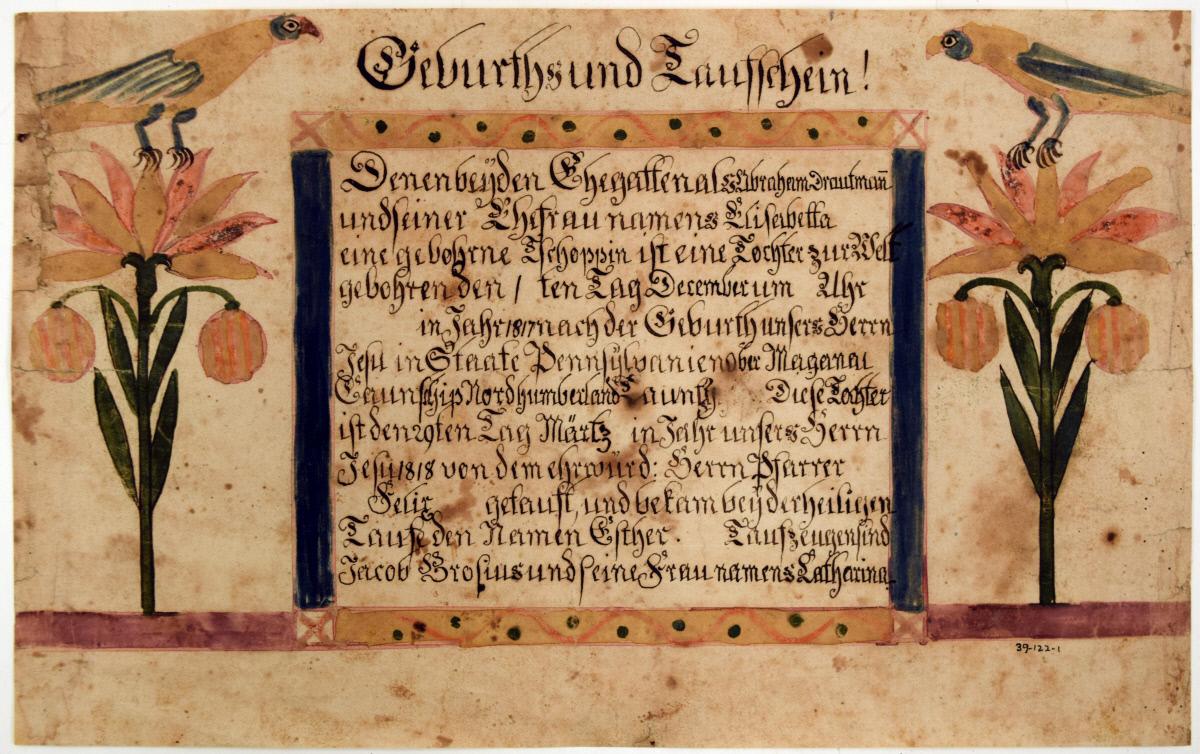 Geburths und Taufschein!
Denen beyden Ehegatten als Abraham Drautmañ
und seiner Ehefrau namens Elisabetta
eine gebohrne Tschoppin ist eine Tochter zur Welt
gebohren den 1 ten Tag December um Uhr
in Jahr 1817 nach der Geburth unsers Herrn
Jesu in Staate Pennsylvanien Ober Maganau
Taunschip Nordhumberland Caunty. Diese Tochter
ist den 29ten Tag Märtz in Jahr unsers Herrn
Jesu 1818 von dem ehrwürd: Herrn Pfarrer
Felix getauft, und bekam bey der heiligen
Taufe den Namen Esther. Taufzeugen sind
Jacob Brosius und seine Frau namens Catharina
39-122-1